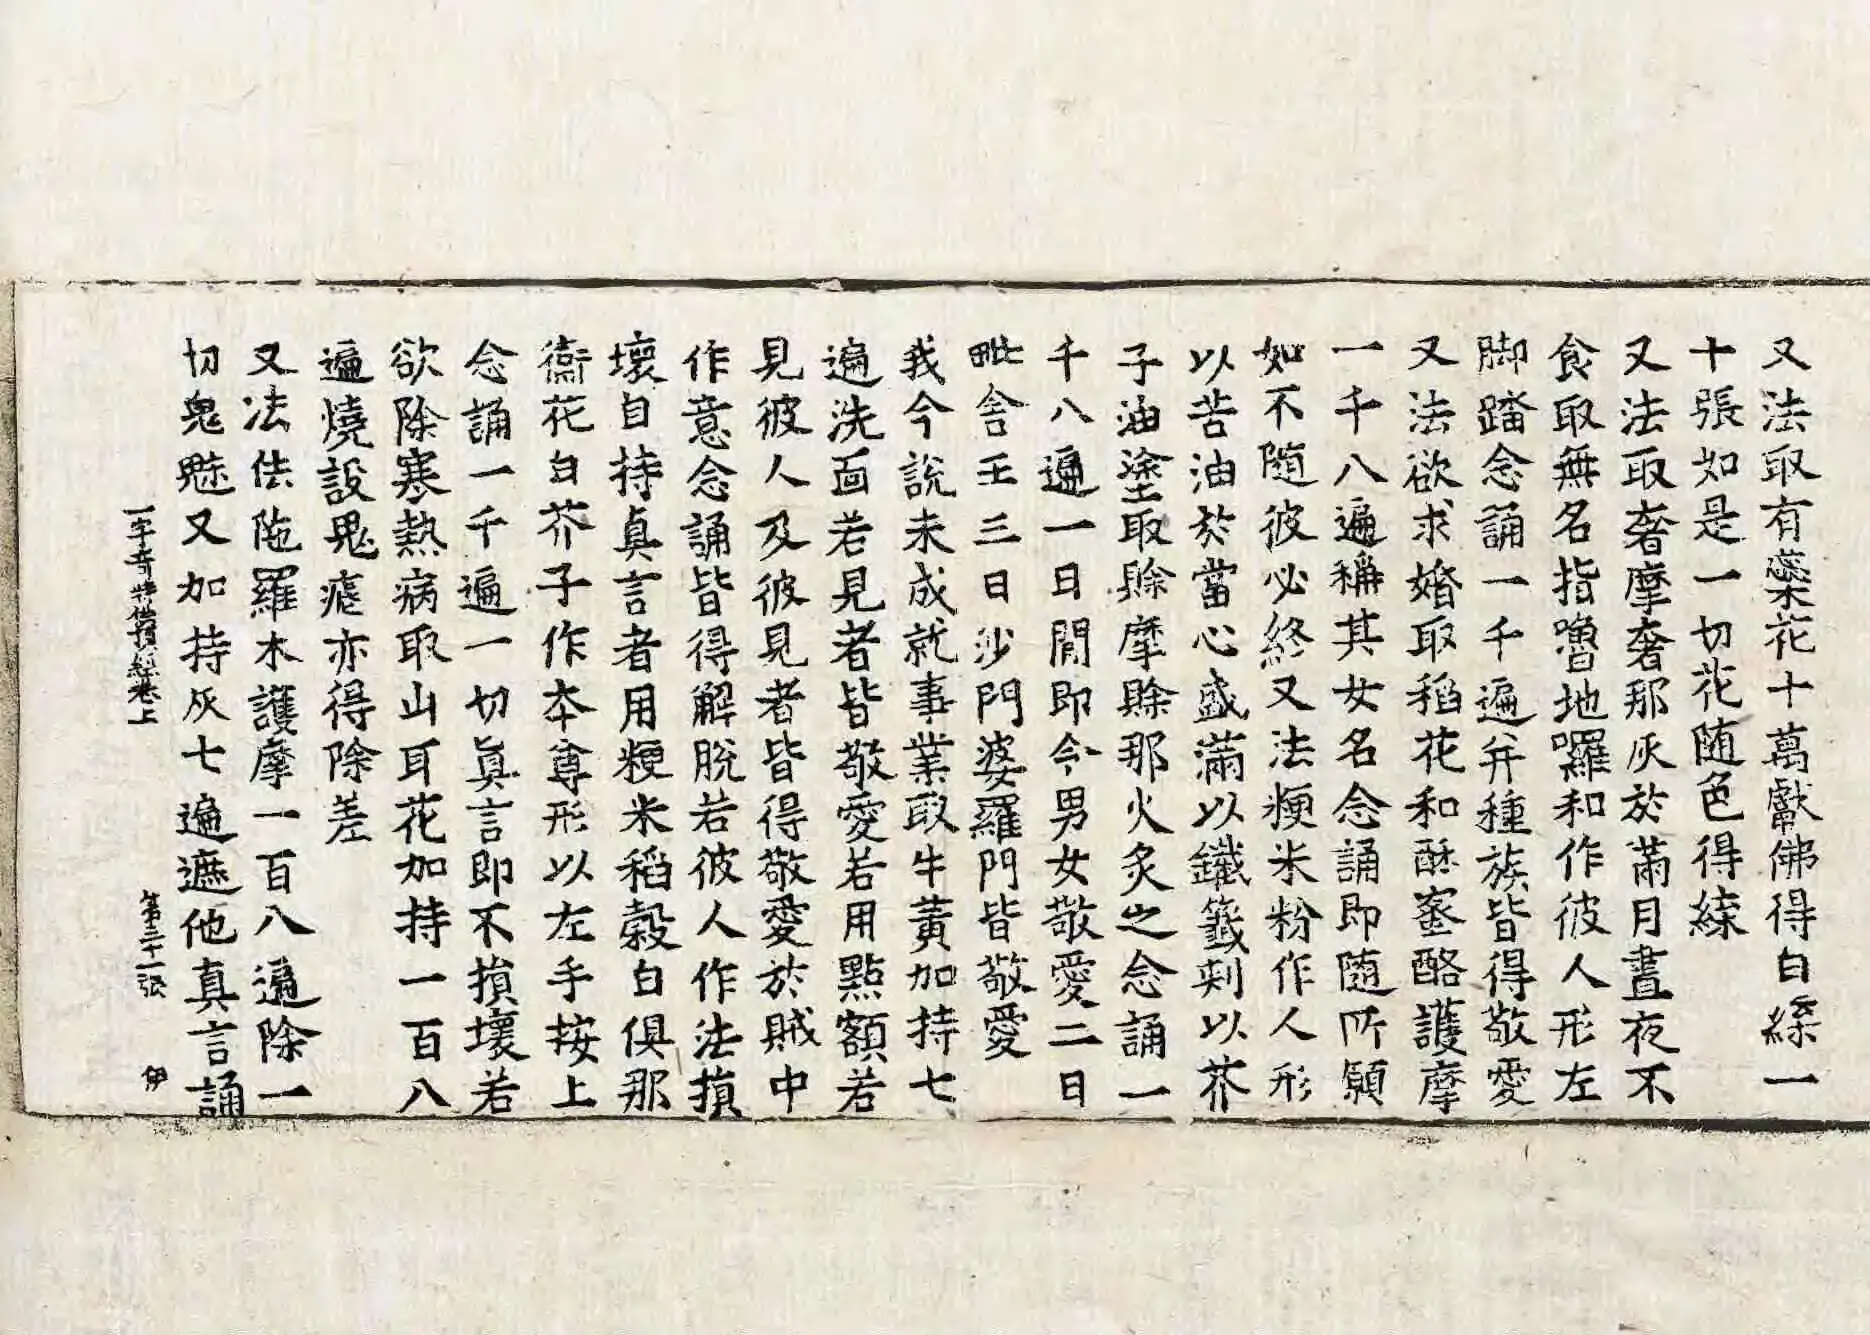 又法取有蘂花十萬獻佛得白㲲一
十張如是一切花随色得緤
又法取奢摩奢那灰於滿月晝夜不
食取無名指嚕地囉和作彼人形左
脚踏念誦一千遍并種族皆得敬愛
又法欲求婚取稻花和酥蜜酪護摩
一千八遍稱其女名念誦即随所願
如不隨彼必終又法粳米粉作人形
以苦油於當心盛滿以鐵籤刺以芥
子油塗取賖摩賖那火炙之念誦一
千八遍一日間即令男女敬愛二日
毗舍王三日沙門婆羅門皆敬愛
我今說未成就事業取牛黃加持七
遍洗面若見者皆敬愛若用點額若
見彼人及彼見者皆得敬愛於賊中
作意念誦皆得解脫若彼人作法損
壞自持真言者用粳米稻穀白俱那
衞花白芥子作本尊形以左手按上
念誦一千遍一切真言即不損壞若
欲除寒熱病取山耳花加持一百八
遍燒設鬼瘧亦得除差
又法佉陁羅木護摩一百八遍除一
切鬼魅又加持灰七遍遮他真言誦
一字奇特佛頂經卷上 第三十二張 伊